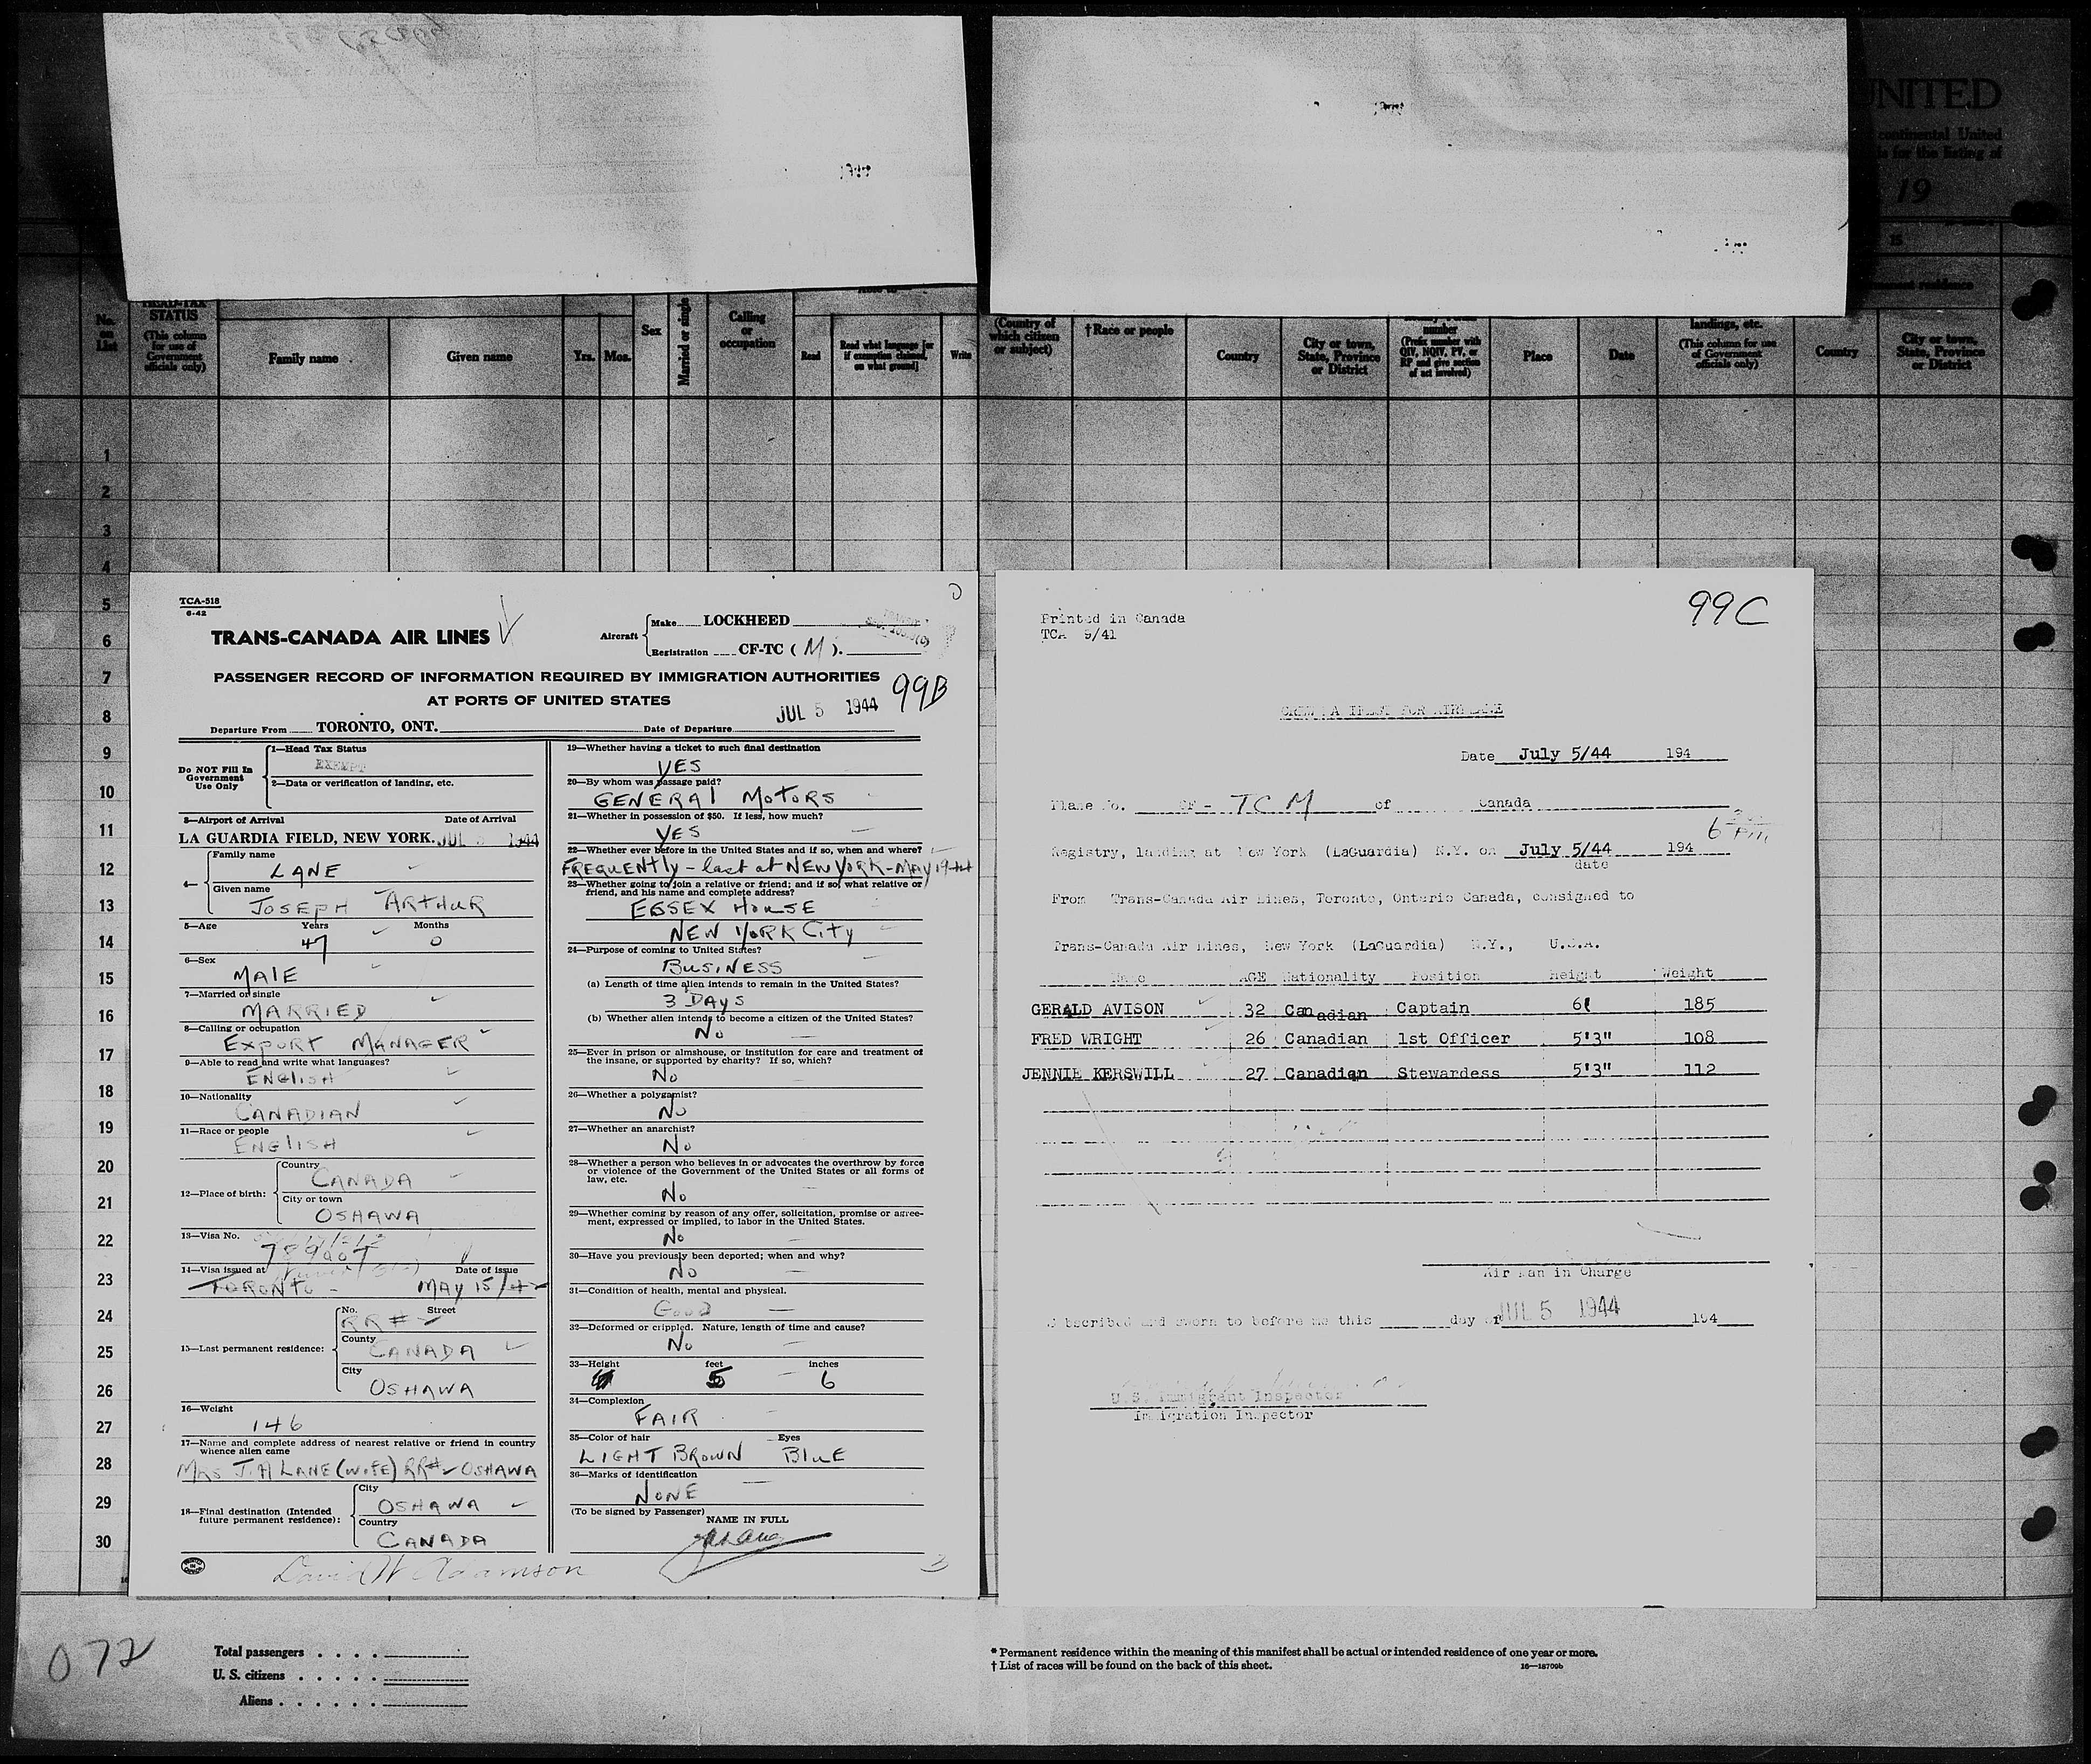 UNITED
continental United
for the listing of
19
15
No. on List
HEAD-TAX STATUS
(This column for use of Government officials only)
Family name
Given name
Yrs.
Mos.
Sex
Married or single
Calling or occupation
Read
Read what language [or if exemption claimed, on what ground]
Write
(Country of which citizen or subject)
†Race or people
Country
City or town, State, Province or District
number
(Prefix number with QIV, NQIV, PV, or RP and give section of act involved)
Place
Date
landings, etc.
(This column for use of Government officials only)
Country
City or town, State, Province or District
1
2
3
4
5
6
7
8
9
10
11
12
13
14
15
16
17
18
19
20
21
22
23
24
25
26
27
28
29
30
TCA-518
6-42
TRANS-CANADA AIR LINES
Aircraft
Make LOCKHEED
Registration CF-TC ( M ).
PASSENGER RECORD OF INFORMATION REQUIRED BY IMMIGRATION AUTHORITIES
AT PORTS OF UNITED STATES
99B
JUL 5 1944
Departure From TORONTO, ONT. Date of Departure
Do NOT Fill In Government Use Only
1—Head Tax Status
EXEMPT
2—Data or verification of landing, etc.
3—Airport of Arrival Date of Arrival
LA GUARDIA FIELD, NEW YORK. JUL 5 1944
4— Family name
LANE
Given name
JOSEPH ARTHUR
5—Age Years Months
47 0
6—Sex
MALE
7—Married or single
MARRIED
8—Calling or occupation
EXPORT MANAGER
9—Able to read and write what languages?
ENGLISH
10—Nationality
CANADIAN
11—Race or people
ENGLISH
12—Place of birth:
Country
CANADA
City or town
OSHAWA
13—Visa No.
14—Visa issued at Date of issue
TORONTO - MAY 15/4
15—Last permanent residence:
No. Street
RR #
County
CANADA
City
OSHAWA
16—Weight
146
17—Name and complete address of nearest relative or friend in country whence alien came
MRS J.A LANE (WIFE) RR# OSHAWA
18—Final destination (Intended future permanent residence):
City
OSHAWA
Country
CANADA
19—Whether having a ticket to such final destination
YES
20—By whom was passage paid?
GENERAL MOTORS
21—Whether in possession of $50. If less, how much?
YES
22—Whether ever before in the United States and if so, when and where?
FREQUENTLY - last at NEW YORK - MAY 1944
23—Whether going to join a relative or friend; and if so, what relative or friend, and his name and complete address?
ESSEX HOUSE
NEW YORK CITY
24—Purpose of coming to United States?
BUSINESS
(a) Length of time alien intends to remain in the United States?
3 DAYS
(b) Whether alien intends to become a citizen of the United States?
NO
25—Ever in prison or almshouse, or institution for care and treatment of the insane, or supported by charity? If so, which?
NO
26—Whether a polygamist?
NO
27—Whether an anarchist?
NO
28—Whether a person who believes in or advocates the overthrow by force or violence of the Government of the United States or all forms of law, etc.
NO
29—Whether coming by reason of any offer, solicitation, promise or agreement, expressed or implied, to labor in the United States.
NO
30—Have you previously been deported; when and why?
NO
31—Condition of health, mental and physical.
GOOD
32—Deformed or crippled. Nature, length of time and cause?
NO
33—Height feet inches
5 6
34—Complexion
FAIR
35—Color of hair Eyes
LIGHT BROWN BLUE
36—Marks of identification
NONE
(To be signed by Passenger)
NAME IN FULL
JALane
David W Adamson
99C
Printed in Canada
TCA 9/41
CREW MANIFEST FOR AIRPLANE
Date July 5/44 194
Plane No. CF - TCM of Canada
6 PM
Registry, landing at New York (LaGuardia) N.Y. on July 5/44 194
date
From Trans-Canada Air Lines, Toronto, Ontario Canada, consigned to
Trans-Canada Air Lines, New York (LaGuardia) N.Y., U.S.A.
Name AGE Nationality Position Height Weight
GERALD AVISON 32 Canadian Captain 6' 185
FRED WRIGHT 26 Canadian 1st Officer 5'3" 108
JENNIE KERSWILL 27 Canadian Stewardess 5'3" 112
Air Man in Charge
Subscribed and sworn to before me this day of JUL 5 1944 194
U.S. Immigrant Inspector
Immigration Inspector
072
Total passengers . . . .
U. S. citizens . . . . .
Aliens . . . . . .
* Permanent residence within the meaning of this manifest shall be actual or intended residence of one year or more.
† List of races will be found on the back of this sheet.
16—18709b